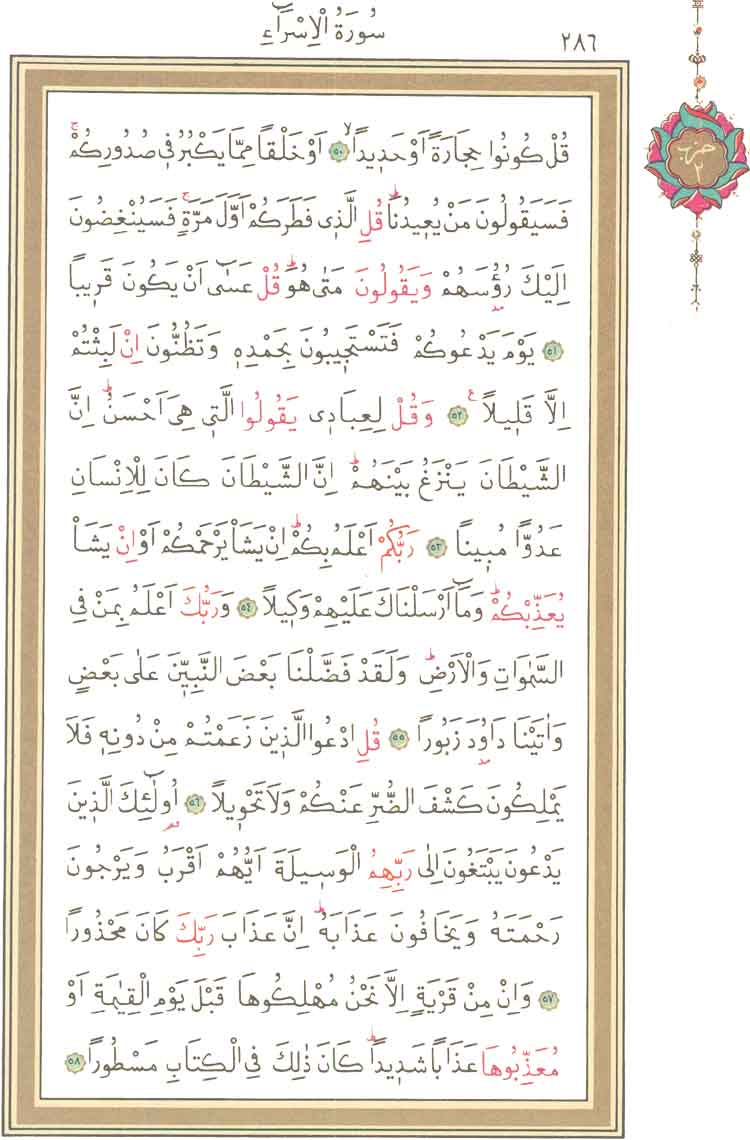 سُورَةُ الْاِسْرَٓاءِ
٢٨٦
حزب
٢
قُلْ كُونُوا حِجَارَةً اَوْ حَد۪يدًاۙ ﴿٥٠﴾ اَوْ خَلْقًا مِمَّا يَكْبُرُ ف۪ي صُدُورِكُمْۚ
فَسَيَقُولُونَ مَنْ يُع۪يدُنَاۜ قُلِ الَّذ۪ي فَطَرَكُمْ اَوَّلَ مَرَّةٍۚ فَسَيُنْغِضُونَ
اِلَيْكَ رُؤُ۫سَهُمْ وَيَقُولُونَ مَتٰى هُوَۜ قُلْ عَسٰٓى اَنْ يَكُونَ قَر۪يبًا
﴿٥١﴾ يَوْمَ يَدْعُوكُمْ فَتَسْتَج۪يبُونَ بِحَمْدِه۪ وَتَظُنُّونَ اِنْ لَبِثْتُمْ
اِلَّا قَل۪يلًا۟ ﴿٥٢﴾ وَقُلْ لِعِبَاد۪ي يَقُولُوا الَّت۪ي هِيَ اَحْسَنُۜ اِنَّ
الشَّيْطَانَ يَنْزَغُ بَيْنَهُمْۜ اِنَّ الشَّيْطَانَ كَانَ لِلْاِنْسَانِ
عَدُوًّا مُب۪ينًا ﴿٥٣﴾ رَبُّكُمْ اَعْلَمُ بِكُمْۜ اِنْ يَشَأْ يَرْحَمْكُمْ اَوْ اِنْ يَشَأْ
يُعَذِّبْكُمْۜ وَمَٓا اَرْسَلْنَاكَ عَلَيْهِمْ وَك۪يلًا ﴿٥٤﴾ وَرَبُّكَ اَعْلَمُ بِمَنْ فِي
السَّمٰوَاتِ وَالْاَرْضِۜ وَلَقَدْ فَضَّلْنَا بَعْضَ النَّبِيّ۪نَ عَلٰى بَعْضٍ
وَاٰتَيْنَا دَاوُ۫دَ زَبُورًا ﴿٥٥﴾ قُلِ ادْعُوا الَّذ۪ينَ زَعَمْتُمْ مِنْ دُونِه۪ فَلَا
يَمْلِكُونَ كَشْفَ الضُّرِّ عَنْكُمْ وَلَا تَحْو۪يلًا ﴿٥٦﴾ اُو۬لٰٓئِكَ الَّذ۪ينَ
يَدْعُونَ يَبْتَغُونَ اِلٰى رَبِّهِمُ الْوَس۪يلَةَ اَيُّهُمْ اَقْرَبُ وَيَرْجُونَ
رَحْمَتَهُ وَيَخَافُونَ عَذَابَهُۜ اِنَّ عَذَابَ رَبِّكَ كَانَ مَحْذُورًا
﴿٥٧﴾ وَاِنْ مِنْ قَرْيَةٍ اِلَّا نَحْنُ مُهْلِكُوهَا قَبْلَ يَوْمِ الْقِيٰمَةِ اَوْ
مُعَذِّبُوهَا عَذَابًا شَد۪يدًاۜ كَانَ ذٰلِكَ فِي الْكِتَابِ مَسْطُورًا ﴿٥٨﴾